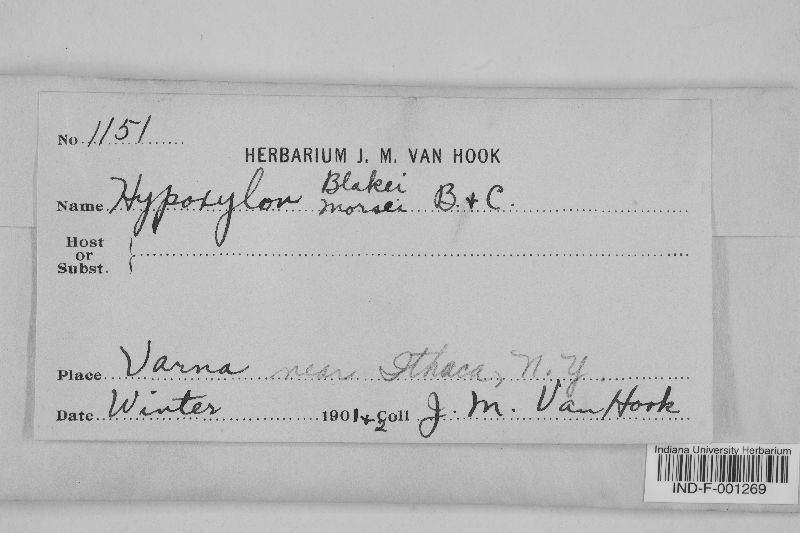 No 1151
HERBARIUM J. M. VAN HOOK
Blakei
Name Hypoxylon Morsei B. & C.
Host
or
Subst.
Place Varna near Ithaca, N. Y.
Date Winter 1901 & 2 Coll J. M. Van Hook
Indiana University Herbarium
IND-F-001269